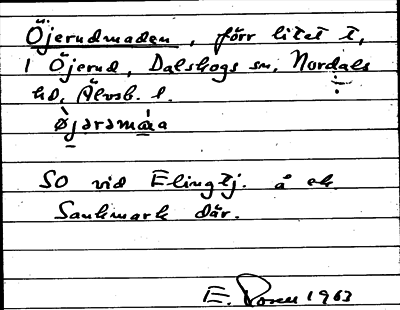 Öjerudmaden, förr litet t,
i Öjerud, Dalskogs sn, Nordals
hd, Älvsb. l.
SO vid Elingtj. å ek
Sankmark där.
E. Rosen 1963